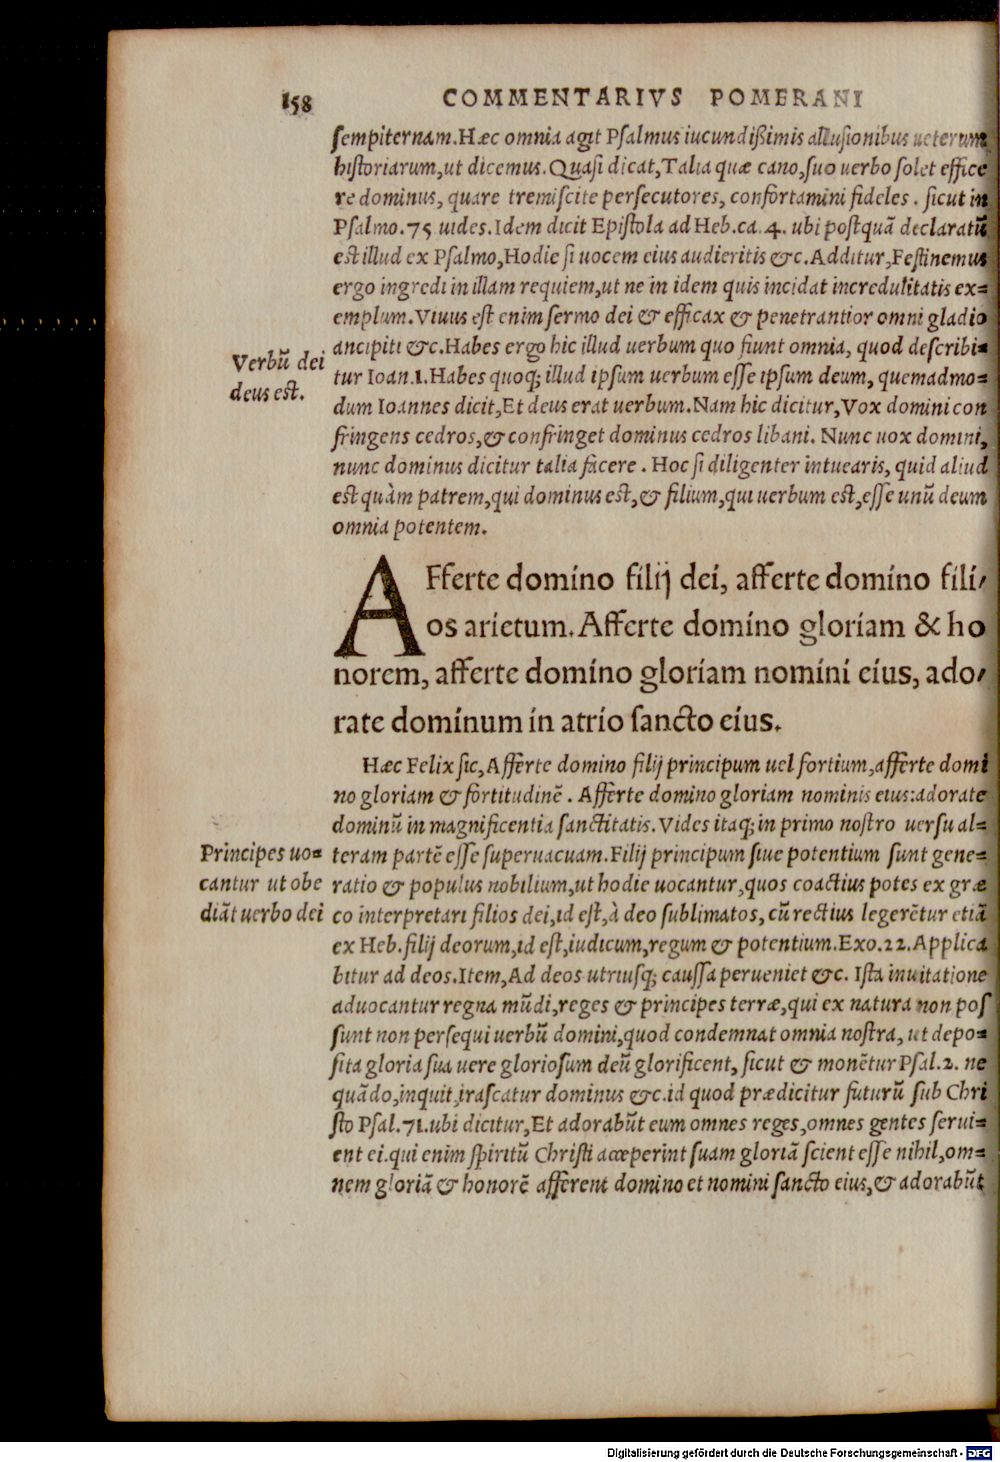 158 COMMENTARIVS POMERANI
sempiternam. Hæc omnia agit Psalmus iucundißimis allusionibus ueterum
historiarum, ut dicemus. Quasi dicat, Talia quæ cano, suo uerbo solet effice
re dominus, quare tremiscite persecutores, confortamini fideles. sicut in
Psalmo. 75 uides. Idem dicit Epistola ad Heb. ca. 4. ubi postquā declaratū
est illud ex Psalmo, Hodie si uocem eius audieritis &c. Additur, Festinemus
ergo ingredi in illam requiem, ut ne in idem quis incidat incredulitatis ex=
emplum. Viuus est enim sermo dei & efficax & penetrantior omni gladio
ancipiti &c. Habes ergo hic illud uerbum quo fiunt omnia, quod describi=
Verbū dei
deus est.
tur Ioan. 1. Habes quoq; illud ipsum uerbum esse ipsum deum, quemadmo=
dum Ioannes dicit, Et deus erat uerbum. Nam hic dicitur, Vox domini con
fringens cedros, & confringet dominus cedros libani. Nunc uox domini,
nunc dominus dicitur talia facere. Hoc si diligenter intuearis, quid aliud
est quàm patrem, qui dominus est, & filium, qui uerbum est, esse unū deum
omnia potentem.
AFferte domino filij dei, afferte domino fili/
os arietum. Afferte domino gloriam & ho
norem, afferte domino gloriam nomini eius, ado/
rate dominum in atrio sancto eius.
Hæc Felix sic, Afferte domino filij principum uel fortium, afferte domi
no gloriam & fortitudinē. Afferte domino gloriam nominis eius: adorate
dominū in magnificentia sanctitatis. Vides itaq; in primo nostro uersu al=
Principes uo=
cantur ut obe
diāt uerbo dei
teram partē esse superuacuam. Filij principum siue potentium sunt gene=
ratio & populus nobilium, ut hodie uocantur, quos coactius potes ex græ
co interpretari filios dei, id est, à deo sublimatos, cū rectius legerētur etiā
ex Heb. filij deorum, id est, iudicum, regum & potentium. Exo. 22. Applica
bitur ad deos. Item, Ad deos utriusq; caussa perueniet &c. Ista inuitatione
aduocantur regna mūdi, reges & principes terræ, qui ex natura non pos
sunt non persequi uerbū domini, quod condemnat omnia nostra, ut depo=
sita gloria sua uere gloriosum deū glorificent, sicut & monētur Psal. 2. ne
quādo, inquit, irascatur dominus &c. id quod prædicitur futurū sub Chri
sto Psal. 71. ubi dicitur, Et adorabūt eum omnes reges, omnes gentes serui=
ent ei. qui enim spiritū Christi acceperint suam gloriā scient esse nihil, om=
nem gloriā & honorē afferent domino et nomini sancto eius, & adorabūt
Digitalisierung gefördert durch die Deutsche Forschungsgemeinschaft - DFG